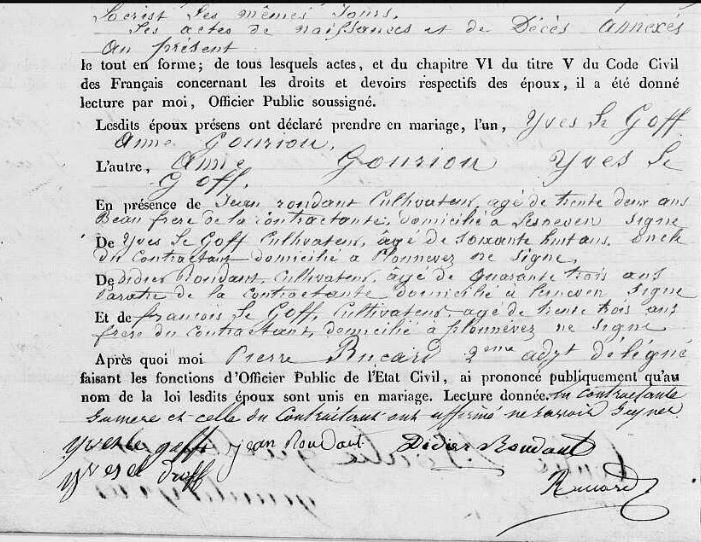 Les mêmes Jours.
Les actes de naissances et de Décès annexés
au présent
le tout en forme; de tous lesquels actes, et du chapitre VI du titre V du Code Civil
des Français concernant les droits et devoirs respectifs des époux, il a été donné
lecture par moi, Officier Public soussigné.
Lesdits époux présens ont déclaré prendre en mariage, l'un, Yves Le Goff
Anne Gouriou,
L'autre, Anne Gouriou Yves Le
Goff,
En présence de Jean roudaut Cultivateur, agé de trente deux ans
Beau frere de la contractante, domicilié à Lesneven signe
De Yves Le Goff Cultivateur, âgé de soixante huit ans, oncle
du Contractant domicilié à Plounevez ne signe,
De Didier Roudaut, Cultivateur, âgé de quarante trois ans
de la contractante domicilié à Lesneven signe
Et de francois Le Goff, Cultivateur, agé de trente trois ans
frere du contractant, domicilié à plounevez ne signe
Après quoi moi Pierre 2eme adjt délégué
faisant les fonctions d'Officier Public de l'Etat Civil, ai prononcé publiquement qu'au
nom de la loi lesdits époux sont unis en mariage. Lecture donnée. la Contractante
sa mere et celle du Contractant ont affirmé ne savoir signer.
yves le goff jean Roudaut Didier Roudaut
yves le